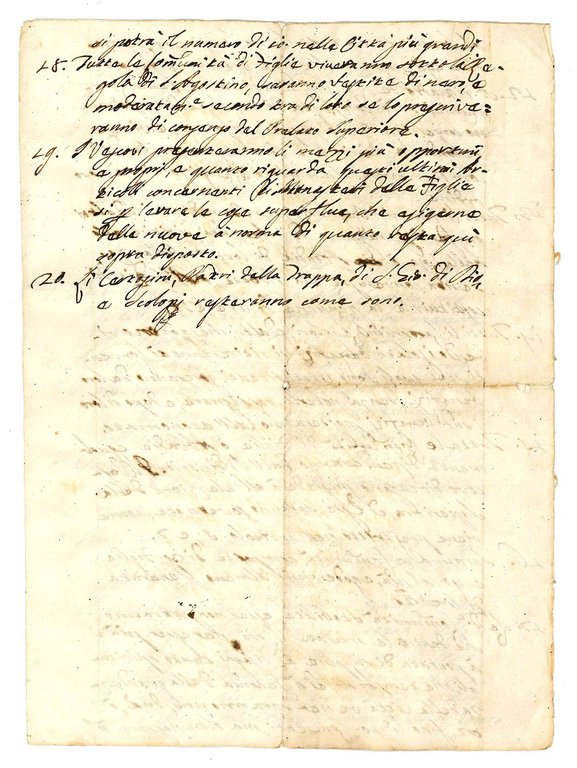 si potrà il numero di 10 nelle Città più grandi
18. Tutte le Comunità di Figlie viveranno sotto la Re=
gola di S. Agostino, saranno vestite di nero, e
moderatam.e secondo tra di loro se lo prescrive=
ranno di consenso del Prelato Superiore.
19. I Vescovi presenteranno li mezzi più opportuni
e propri e quanto riguarda questi ultimi Ar=
ticoli concernenti Monasteri delle Figlie
si p levare le case superflue, che erigerne
delle nuove à norma di quanto resta quì
sopra disposto.
20. Li Certosini, Padri della Trappa, di S. Gio: di Dio,
e Scolopi resteranno come sono.